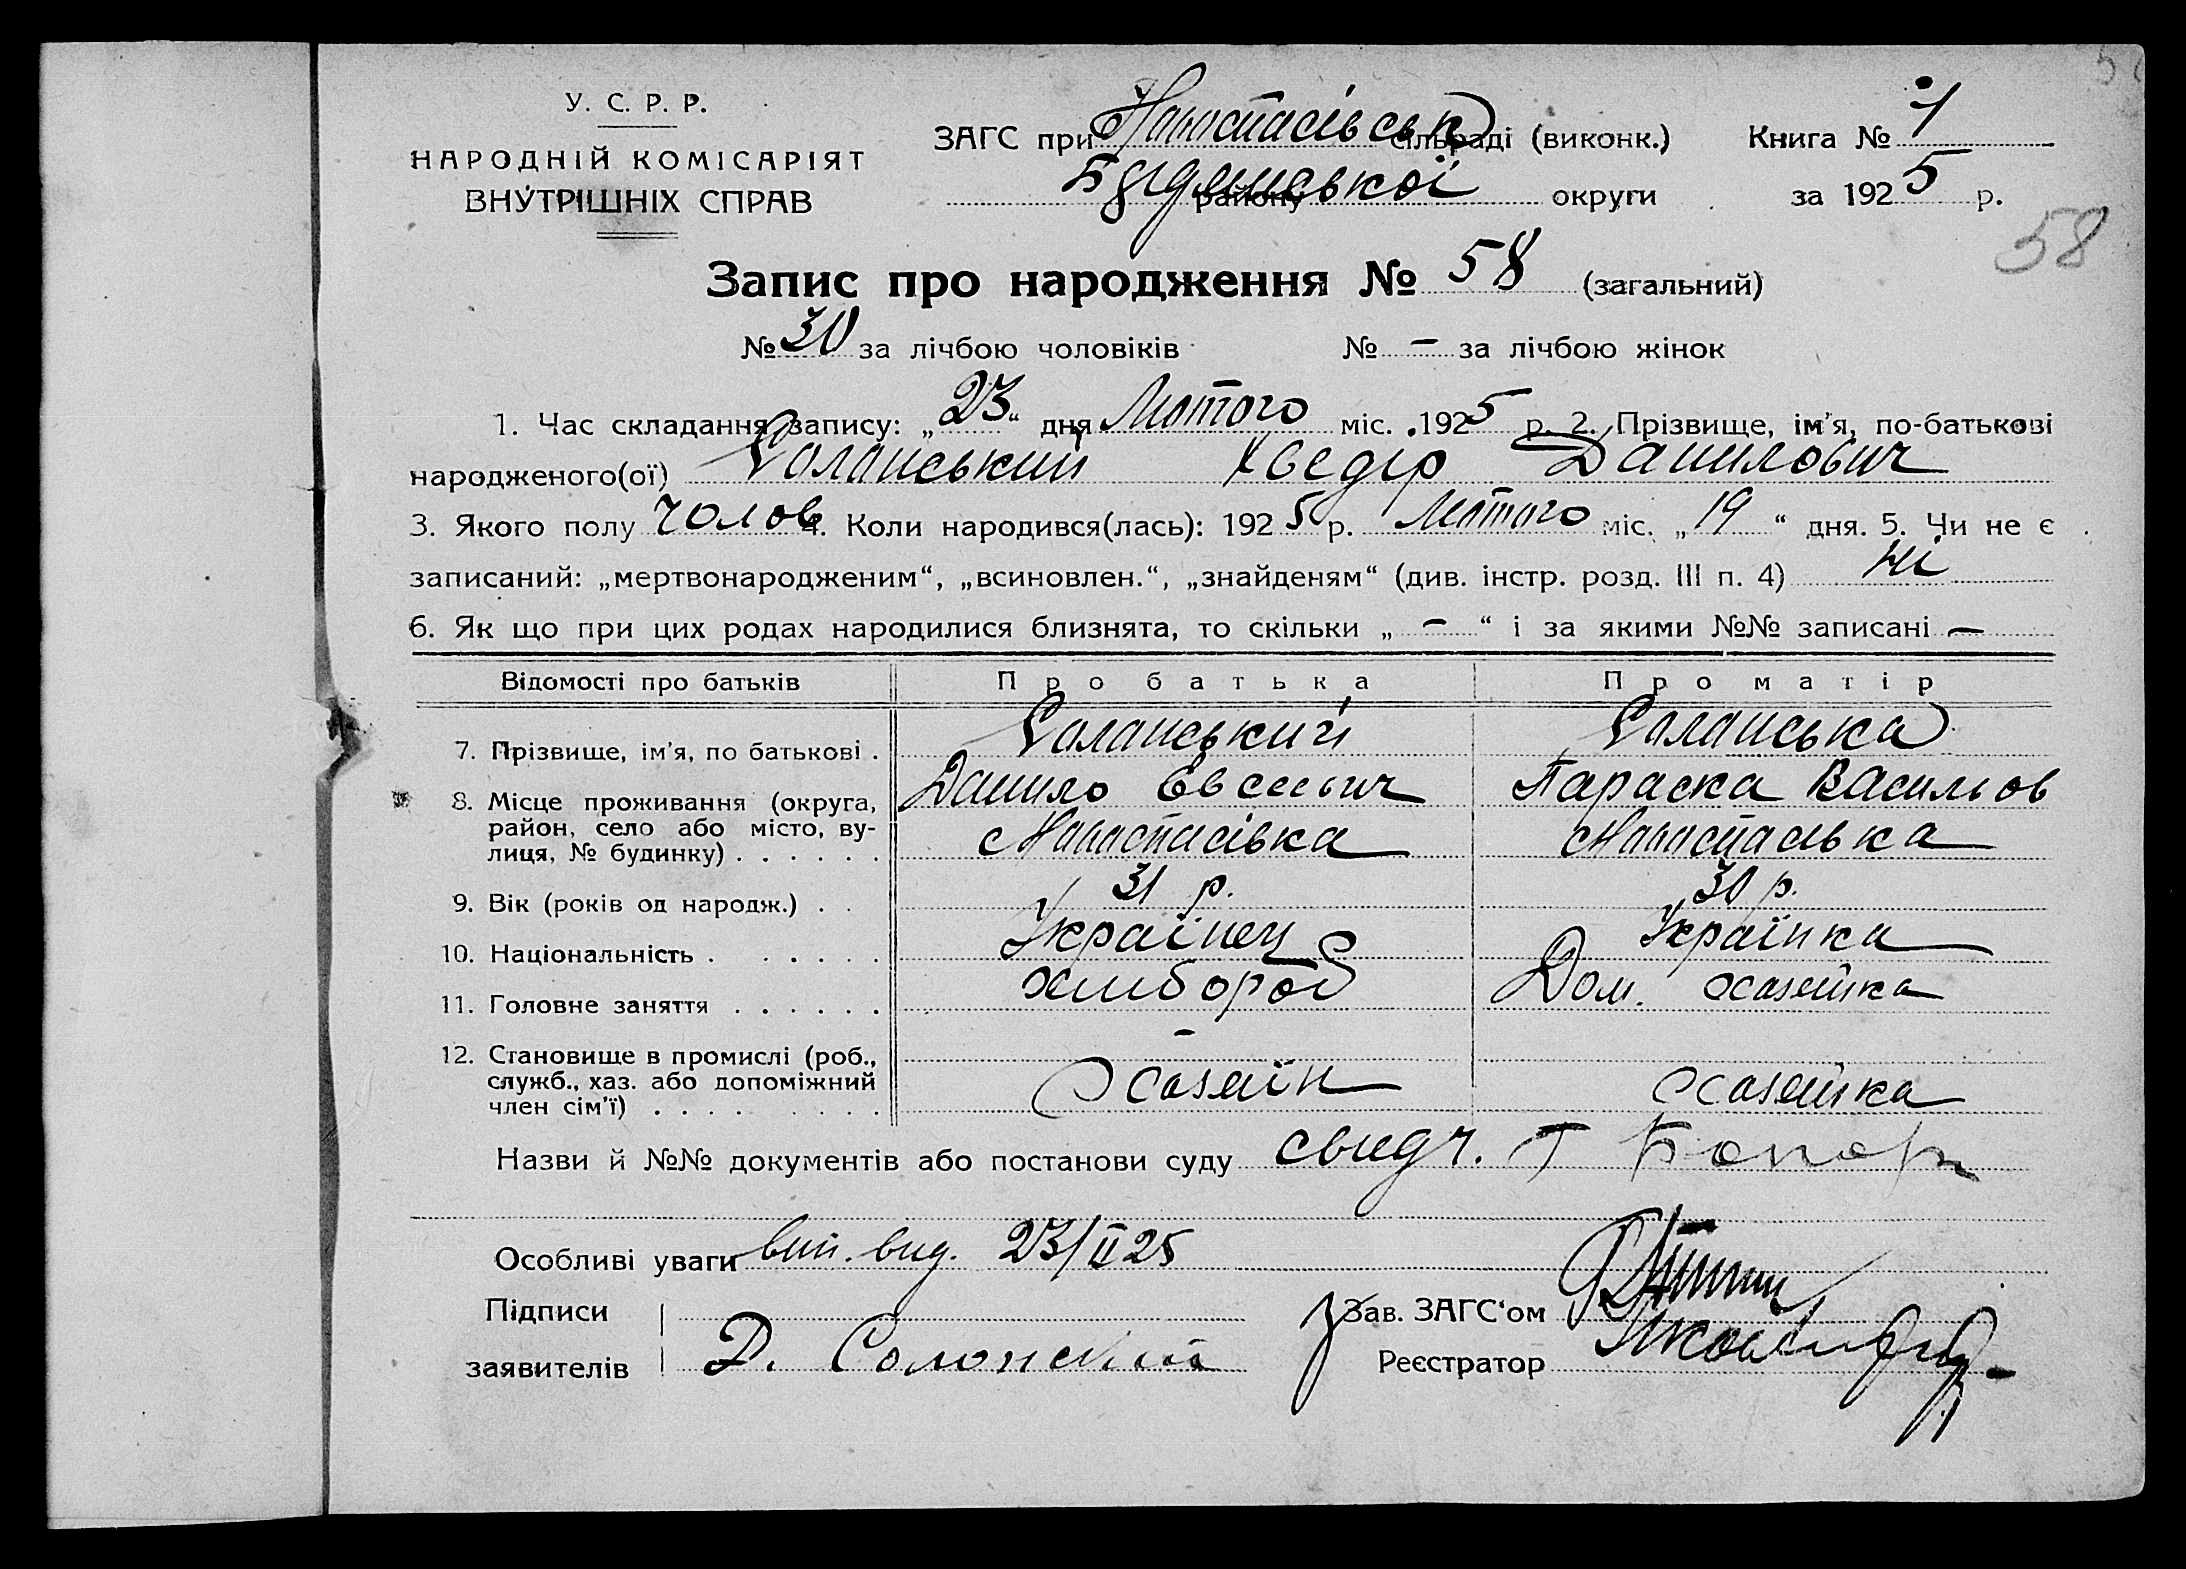 У. С. Р. Р.
НАРОДНІЙ КОМІСАРІЯТ
ВНУТРІШНІХ СПРАВ
ЗАГС при сільраді (виконк.) Книга № 1
району округи за 1925 р.
58
Запис про народження № 58 (загальний)
№ 30 за лічбою чоловіків № — за лічбою жінок
1. Час складання запису: „23“ дня Лютого міс. 1925 р. 2. Прізвище, ім'я, по-батькові
народженого(ої) Соланський Хведір Данилович
3. Якого полу Чолов 4. Коли народився(лась): 1925 р. Лютого міс. „19“ дня. 5. Чи не є
записаний: „мертвонародженим“, „всиновлен.“, „знайденям“ (див. інстр. розд. III п. 4) Ні
6. Як що при цих родах народилися близнята, то скільки „—“ і за якими №№ записані —
Відомості про батьків Про батька Про матір
7. Прізвище, ім'я, по батькові . Соланський Соланська
8. Місце проживання (округа, район, село або місто, вулиця, № будинку) . . . . . . Данило Параска Васильов
9. Вік (років од народж.) . . 31 р. 30 р.
10. Національність . . . . . . Українец Українка
11. Головне заняття . . . . . . хлибороб Дом. хазяйка
12. Становище в промислі (роб., —
служб., хаз. або допоміжний
член сім'ї) . . . . . . . . Хазяїн хазяйка
Назви й №№ документів або постанови суду свидч.
Особливі уваги вип. вид. 23/II 25
Підписи Зав. ЗАГС'ом
заявителів Д. Солонский Реєстратор